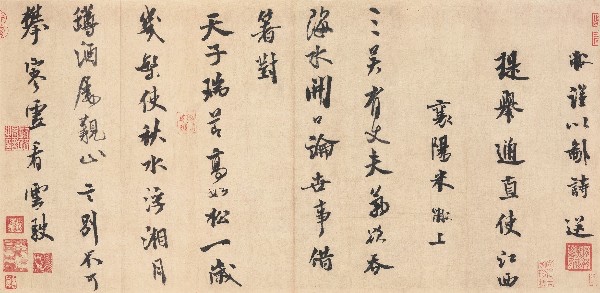 黻謹以鄙詩送
提舉通直使江西
襄陽米黻上
三吳有丈夫氣欲吞
海水開口論世事借
箸對
天子瑞節高如松一歲
幾使秋水浮湘月
罇酒屬山別不可
攀寒雲看雲駛